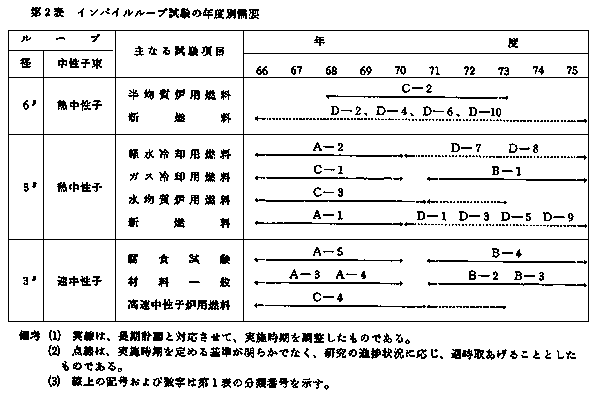 第2表 インパイルループ試験の年度別需要
ループ 主なる試験項目 年度
径 中性子束 66 67 68 69 70 71 72 73 74 75
6″ 熱中性子 半均質炉用燃料 C-2
新燃料 D-2、D-4、D-6、D-10
軽水冷却用燃料 A-2 D-7 D-8
3″ 熱中性子 ガス冷却用燃料 C-1 B-1
水均質炉用燃料 C-3
新燃料 A-1 D-1 D-3 D-5 D-9
腐食試験 A-5 B-4
3″ 速中性子 材料一般 A-3 A-4 B-2 B-3
高速中性子炉用燃料 C-4
備考 (1) 実線は、長期計画と対応させて、実施時期を調整したものである。
(2) 点線は、実施時期を定める基準が明らかでなく、研究の進捗状況に応じ、適時取あげることとした
ものである。
(3) 線上の記号および数字は第1表の分類番号を示す。